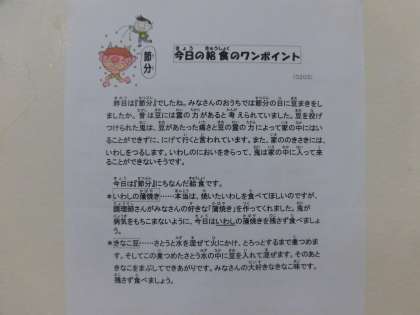 節分
今日の給食のワンポイント
昨日は『節分』でしたね。みなさんのおうちでは節分の日に豆まきをし
ましたか。昔は豆には霊の力があると考えられていました。豆を投げ
つけられた鬼は、豆があたった痛さと豆の霊の力によって家の中にはい
ることができずに、にげて行くと言われています。また、家ののきさきには、
いわしをつるします。いわしのにおいをきらって、鬼は家の中に入って来
ることができないそうです。
今日は『節分』にちなんだ給食です。
＊いわしの蒲焼き……本当は、使いたいわしを食べてほしいのですが、
調理師さんがみなさんの好きな「蒲焼き」を作ってくれました。鬼が
病気をもちこまないように、今日はいわしの蒲焼きを残さず食べましょ
う。
＊きなこ豆……さとうと水を混ぜて火にかけ、とろっとするまで煮つめま
す。そしてこの煮つめたさとう水の中に豆を入れて混ぜます。そのあと
きなこをまぶしてできあがりです。みなさんの大好きなきなこ味です。
残さず食べましょう。